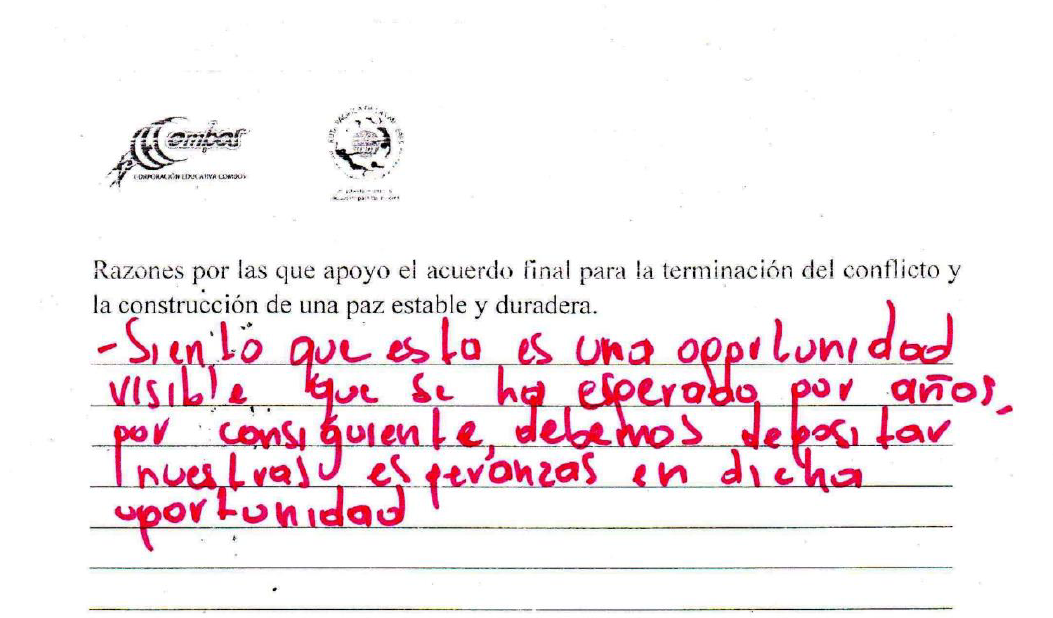 ombos
CORPORACIÓN EDUCATIVA COMBOS
Razones por las que apoyo el acuerdo final para la terminación del conflicto y
la construcción de una paz estable y duradera.
- Siento que esta es una oportunidad
visible que se ha esperado por años,
por consiguiente, debemos depositar
nuestras esperanzas en dicha
oportunidad